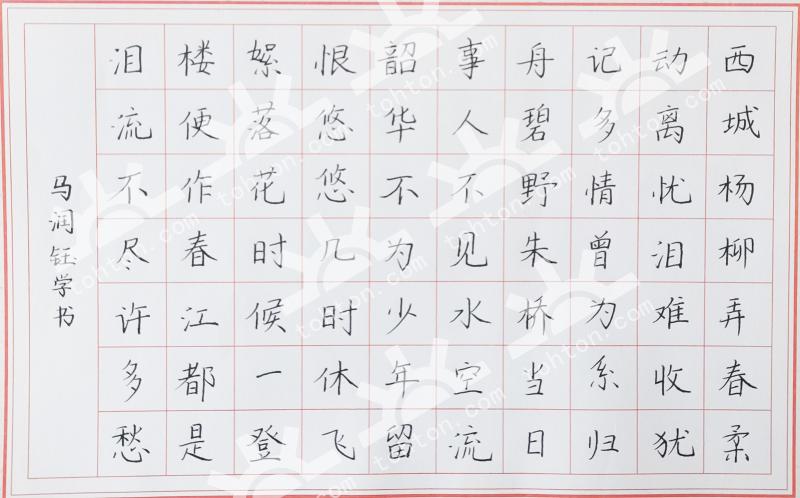 西城杨柳弄春柔
动离忧泪难收犹
记多情曾为系归
舟碧野朱桥当日
事人不见水空流
韶华不为少年留
恨悠悠几时休飞
絮落花时候一登
楼便作春江都是
泪流不尽许多愁
马润钰学书
tohton.com